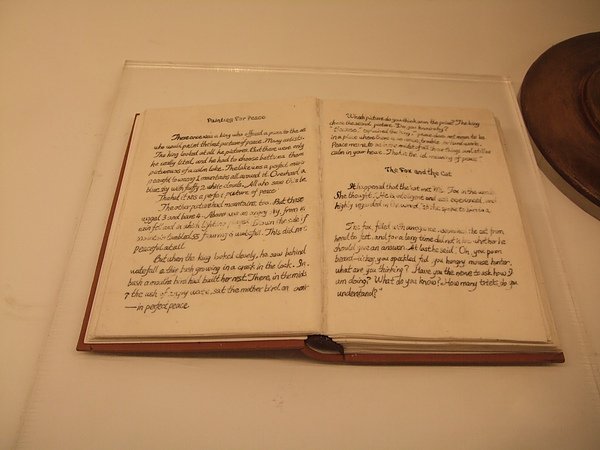 Painting For Peace
There once was a king who offered a prize to the
who would paint the best picture of peace. Many artists
The king looked at all the pictures. But there were only
he really liked, and he had to choose between them
picture was of a calm lake. The lake was a perfect
mountains all around it. Overhead a
blue sky with fluffy white clouds. All who saw this
That it was a perfect picture of peace
The other picture had mountains, too. But these
Above was an angry sky from
rain fell and in which lightning played. Down the side of
mountain tumbled a foaming waterfall. This did
peaceful at all.
But when the king looked closely, he saw behind
waterfall a tiny bush growing in a crack in the rock. In
bush a mother bird had built her nest. There, in the midst
of angry water, sat the mother bird on
— in perfect peace
Which picture do you think won the prize? The king
chose the second picture. Do you know why?
"Because," explained the king, "peace does not mean to be
in a place where there is no noise, trouble, or hard work.
Peace means to be in the midst of all those things and still be
calm in your heart. That is the real meaning of peace."
The Fox and the Cat
It happened that the cat met Mr. Fox in the woods.
She thought, He is intelligent and was experienced, and
highly regarded in the world,
The fox, filled with arrogance, examined the cat from
head to feet, and for a long time did not know whether he
should give an answer. At last he said, Oh, you poor
beard-licker, you speckled fool, you hungry mouse hunter,
what are you thinking? Have you the nerve to ask how I
am doing? What do you know? How many tricks do you
understand?"